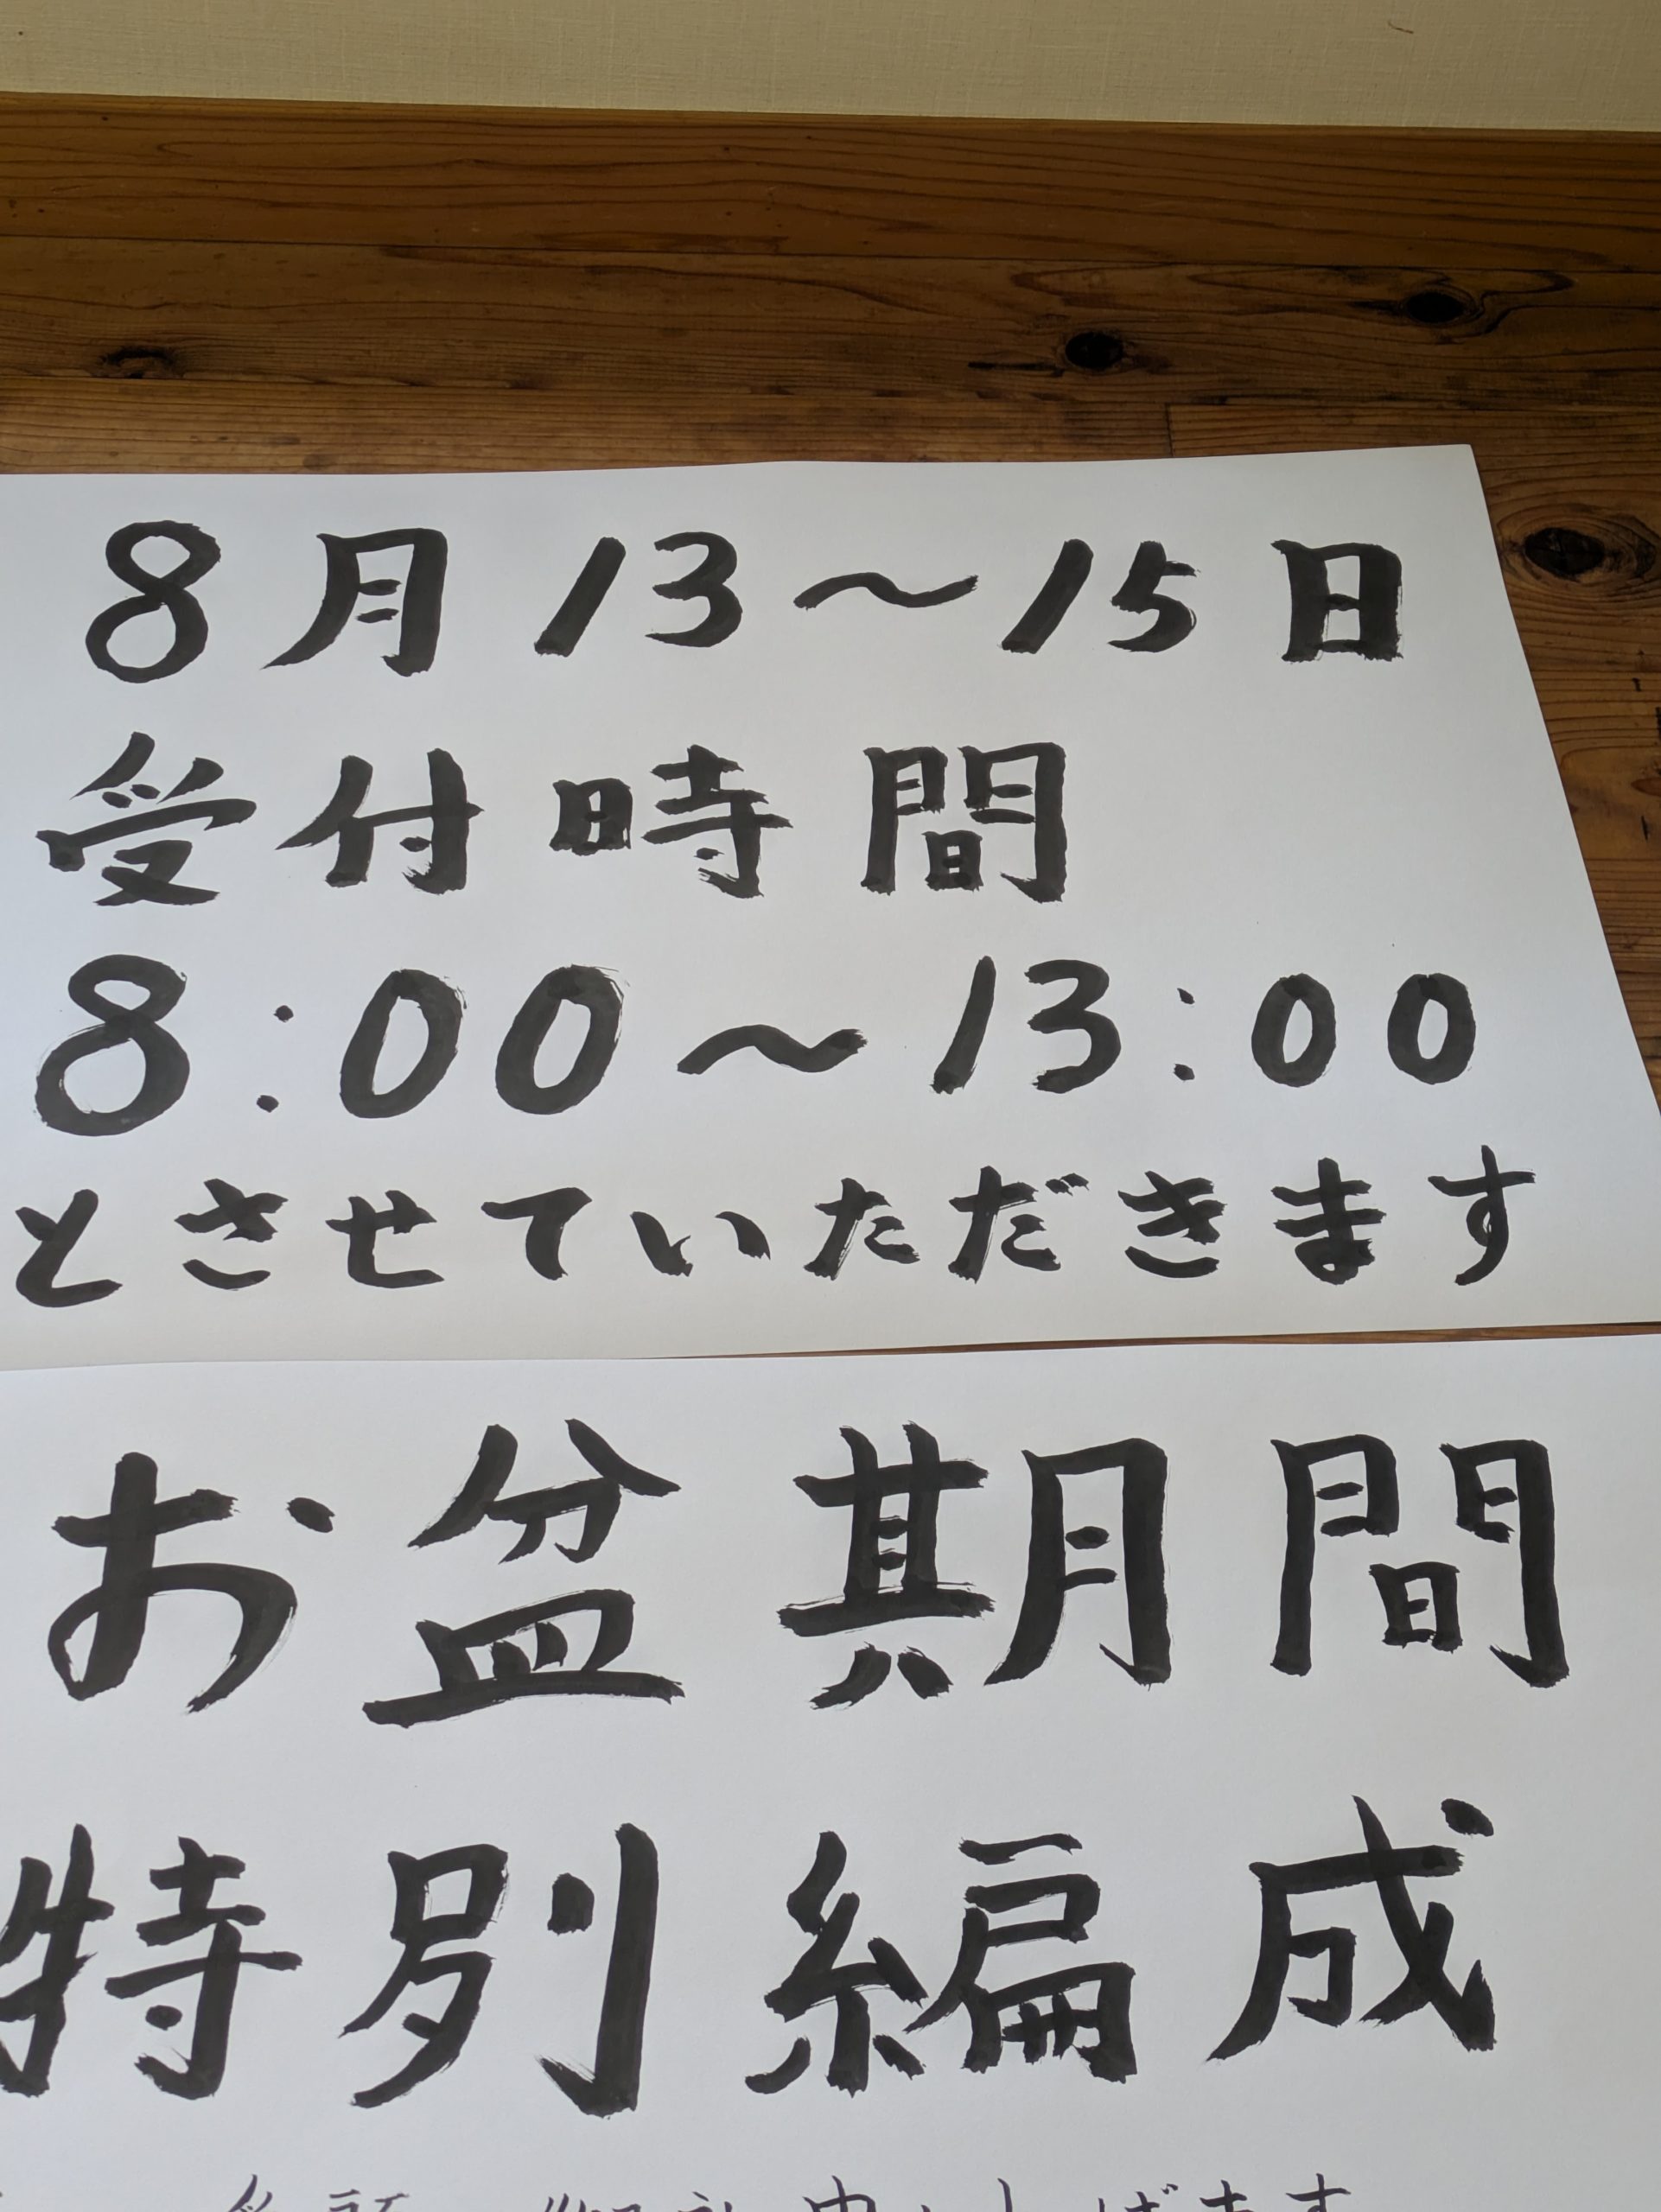 8月13～15日
受付時間
8:00～13:00
とさせていただきます
お盆期間
特別編成